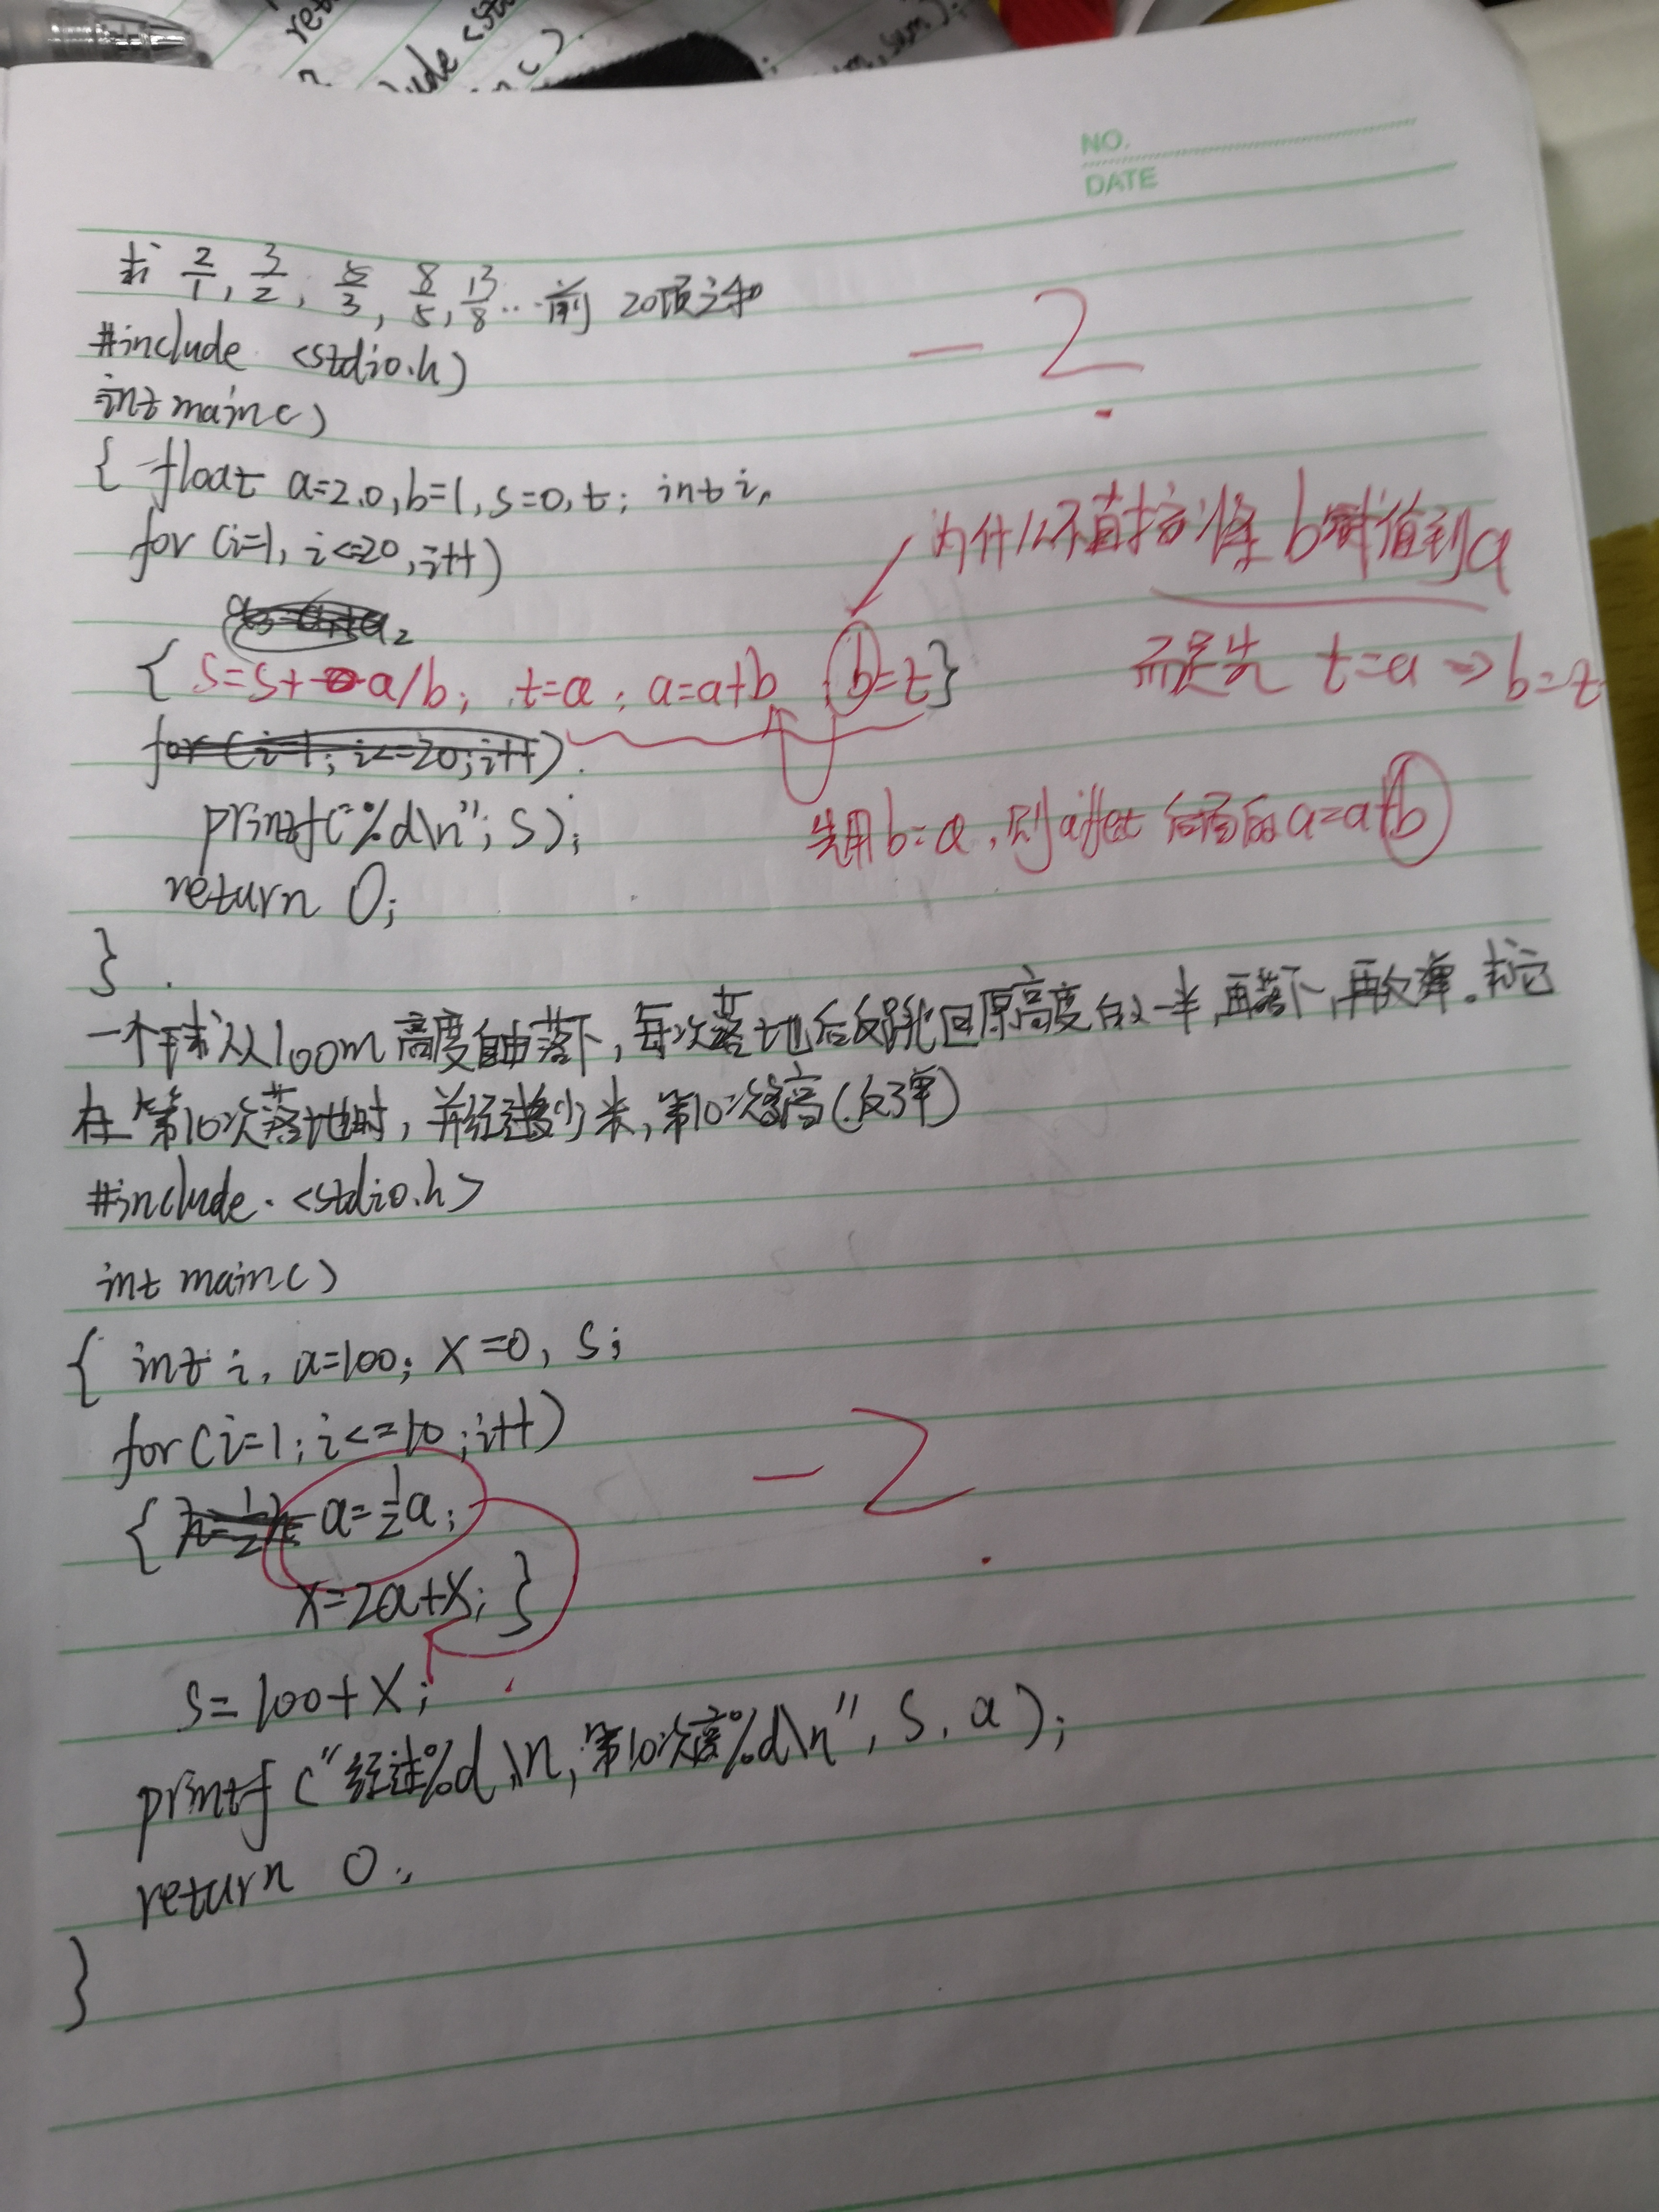 NO.
DATE
求 2/1, 3/2, 5/3, 8/5, 13/8 ... 前 20项之和
#include <stdio.h)
int main()
{ float a=2.0, b=1, s=0, t; int i,
for (i=1, i<=20, i++)
{ s=s+ a/b; t=a; a=a+b b=t}
for (i=1; i<=20; i++)
printf("%d\n"; s);
return 0;
}
-2
为什么不直接将 b赋值到a
而是先 t=a => b=t
先用b=a, 则affect 后面的a=a+b
一个球从100m高度自由落下, 每次落地后反跳回原高度的一半, 再落下, 再反弹. 求它
在第10次落地时, 共经过多少米, 第10次多高(反弹)
#include <stdio.h>
int main()
{ int i, a=100; x=0, s;
for(i=1; i<=10; i++)
{ a=1/2a;
x=2a+x; }
-2
s=100+x;
printf("经过%d\n, 第10次高%d\n", s, a);
return 0;
}